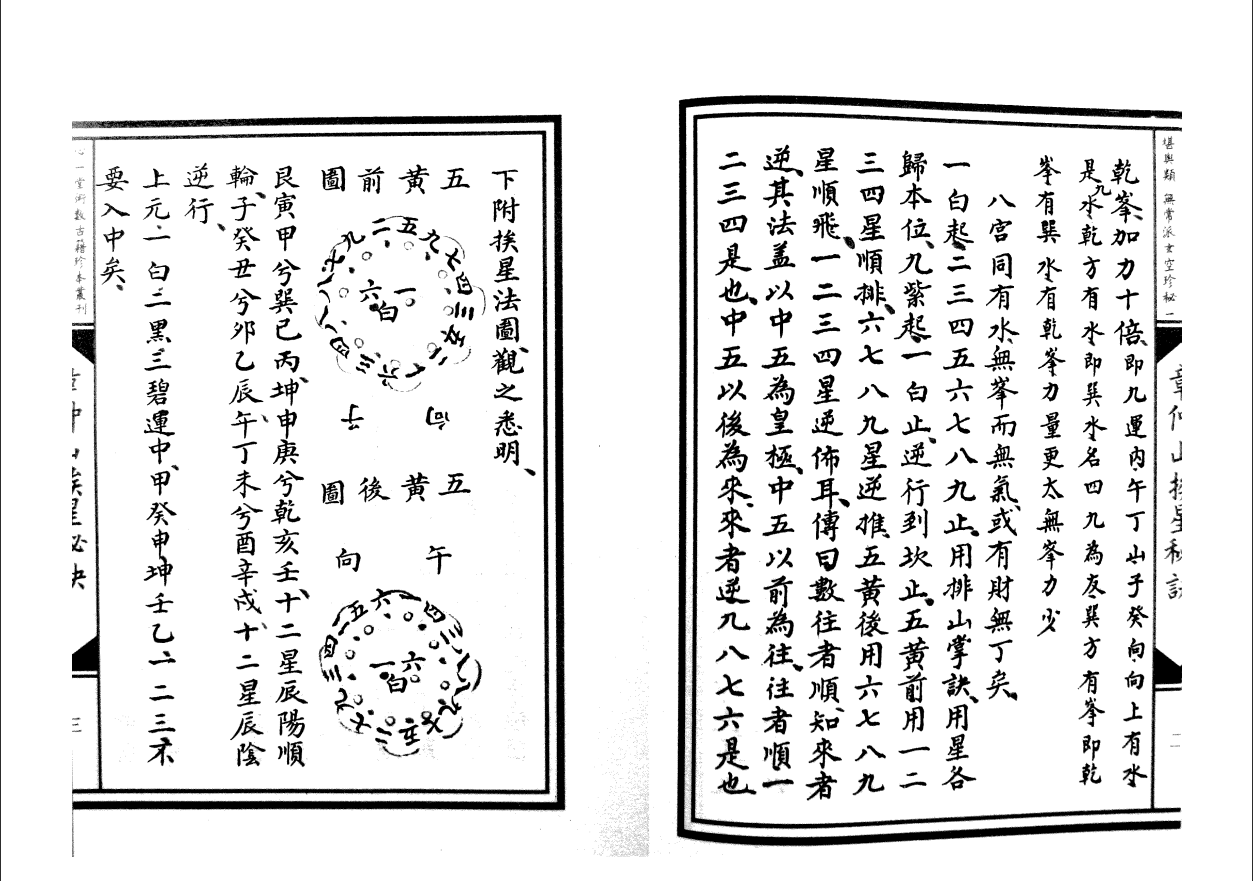 堪輿類 無常派玄空珍秘 一
章仲山挨星秘訣
二
乾峯、加力十倍、即九運內午丁山子癸向、向上有水
是九水、乾方有水、即巽水、名四九為友、巽方有峯、即乾
峯、有巽水、有乾峯、力量更大、無峯力少、
八宮同有水、無峯而無氣、或有財無丁矣、
一白起、二三四五六七八九止、用排山掌訣、用星各
歸本位、九紫起、一白止、逆行到坎止、五黃前用一二
三四星順排、六七八九星逆推、五黃後用六七八九
星順飛、一二三四星逆佈耳、傳曰數往者順、知來者
逆、其法蓋以中五為皇極、中五以前為往、往者順、一
二三四是也、中五以後為來、來者逆、九八七六是也、
下附挨星法圖、觀之悉明、
五黃前圖
一白
六
子
向
五黃後圖
午
向
六白
一
艮寅甲兮巽巳丙、坤申庚兮乾亥壬、十二星辰陽順
輪、子癸丑兮卯乙辰、午丁未兮酉辛戌、十二星辰陰
逆行、
上元一白、二黑、三碧運中、甲癸申、坤壬乙、一二三不
要入中矣、
心一堂術數古籍珍本叢刊
章仲山挨星秘訣
三